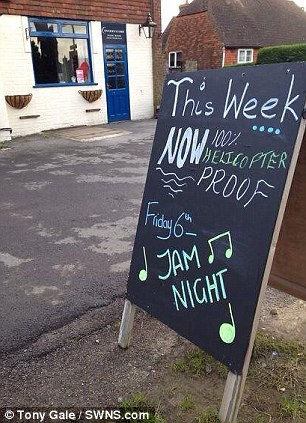 This Week
NOW 100% HELICOPTER
PROOF
Friday 6th
JAM
NIGHT
© Tony Gale / SWNS.com